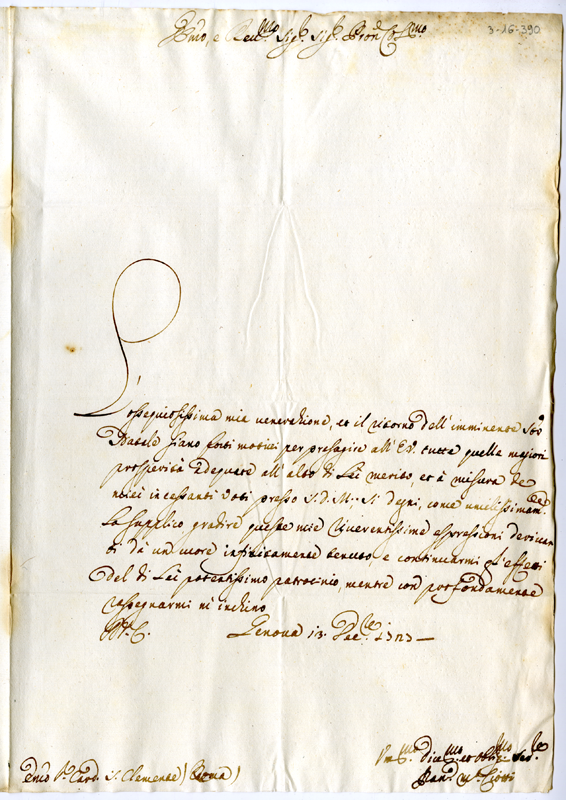 Em.mo, e Rev.mo Sig.r Sig.r Pron Col.mo
3-16-390
L'ossequiosissima mia venerazione, et il ritorno dell' imminente S.to
Natale siano forti motivi per presagire all' E.V. tutte quelle magiori
prosperità adequate all' alto di Lei merito, et à misura de
miei incessanti voti presso S.D.M.; Si degni, come umilissimam.te
La supplico gradire queste mie riverentissime espressioni derivan
ti dà un cuore infinitamente tenuto, e continuarmi gl' effetti
del di Lei potentissimo patrocinio, mentre con profondamente
rassegnarmi m' inchino
Di V.E. Genova 13 Xbre 1723
Em.o S.r Card. S. Clemente (Roma)
Um.mo Div.mo et Obblig.mo Ser.re